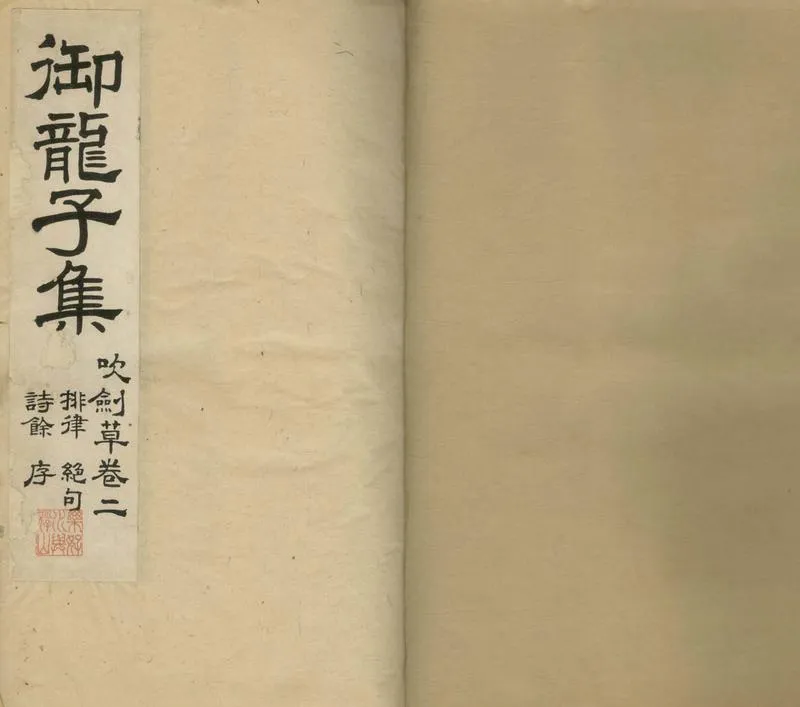 御龍子集
吹劍草卷二
排律 絕句
詩餘 序